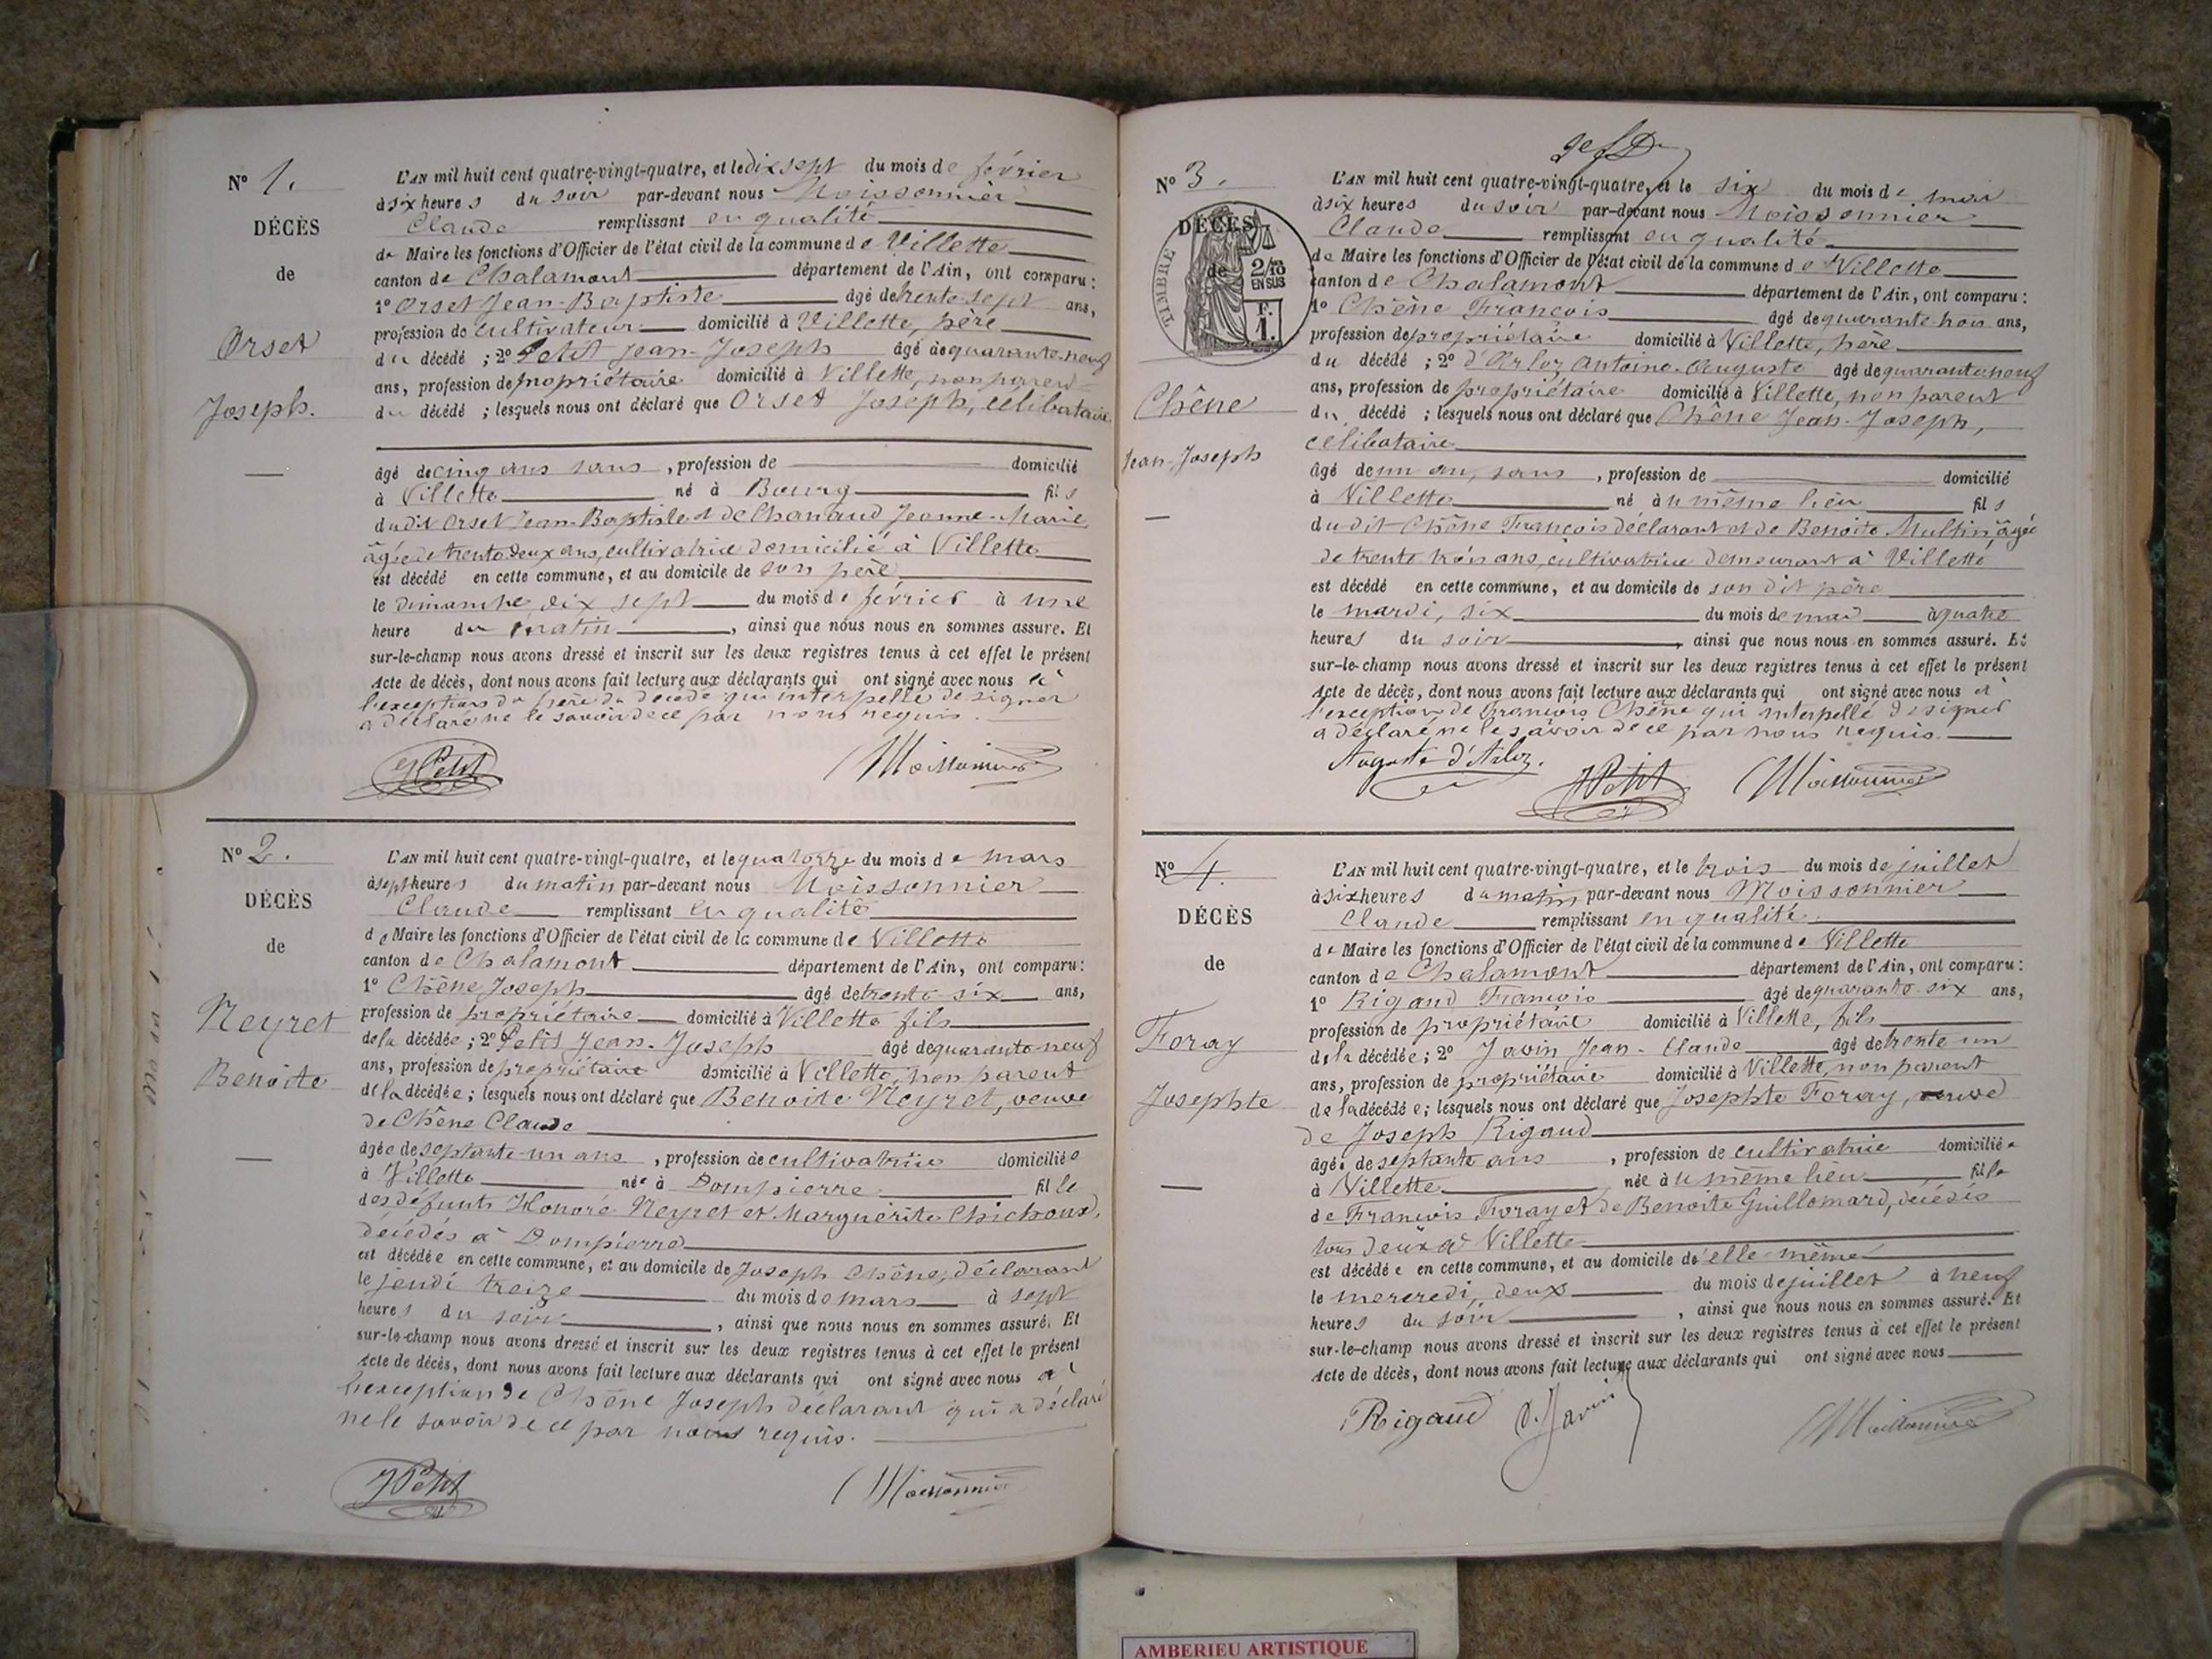 N° 1.
DÉCÈS
de
Orset
Joseph.
L'AN mil huit cent quatre-vingt-quatre, et le dix sept du mois de février
à six heures du soir par-devant nous Moissonnier
Claude remplissant en qualité
de Maire les fonctions d'Officier de l'état civil de la commune de Villette
canton de Chalamont département de l'Ain, ont comparu :
1° Orset Jean-Baptiste âgé de trente-sept ans,
profession de cultivateur domicilié à Villette, père
du décédé ; 2° Petit Jean-Joseph âgé de quarante-neuf
ans, profession de propriétaire domicilié à Villette, non parent
du décédé ; lesquels nous ont déclaré que Orset Joseph, célibataire
âgé de cinq ans sans , profession de domicilié
à Villette né à Bourg fils
dudit Orset Jean-Baptiste et de Chanaud Jeanne-Marie
âgée de trente deux ans, cultivatrice domicilié à Villette
est décédé en cette commune, et au domicile de son père
le dimanche dix sept du mois de février à une
heure du matin , ainsi que nous nous en sommes assuré. Et
sur-le-champ nous avons dressé et inscrit sur les deux registres tenus à cet effet le présent
Acte de décès, dont nous avons fait lecture aux déclarants qui ont signé avec nous à
l'exception du père du décédé qui interpellé de signer
a déclaré ne le savoir de ce par nous requis.
JPetit Moissonnier
N° 2.
DÉCÈS
de
Neyret
Benoite
L'AN mil huit cent quatre-vingt-quatre, et le quatorze du mois de mars
à sept heures du matin par-devant nous Moissonnier
Claude remplissant en qualité
de Maire les fonctions d'Officier de l'état civil de la commune de Villette
canton de Chalamont département de l'Ain, ont comparu :
1° Chêne Joseph âgé de trente-six ans,
profession de propriétaire domicilié à Villette fils
de la décédée ; 2° Petit Jean-Joseph âgé de quarante-neuf
ans, profession de propriétaire domicilié à Villette, non parent
de la décédée ; lesquels nous ont déclaré que Benoite Neyret, veuve
de Chêne Claude
âgée de septante-un ans , profession de cultivatrice domiciliée
à Villette née à Dompierre fille
des défunts Honoré Neyret et Marguerite Chichoux,
décédés à Dompierre
est décédée en cette commune, et au domicile de Joseph Chêne, déclarant
le jeudi treize du mois de mars à sept
heures du soir , ainsi que nous nous en sommes assuré. Et
sur-le-champ nous avons dressé et inscrit sur les deux registres tenus à cet effet le présent
Acte de décès, dont nous avons fait lecture aux déclarants qui ont signé avec nous à
l'exception de Chêne Joseph déclarant qui a déclaré
ne le savoir de ce par nous requis.
JPetit Moissonnier
N° 3.
DÉCÈS
de
TIMBRE
2/10
EN SUS
F.
1.
Chêne
Jean-Joseph
L'AN mil huit cent quatre-vingt-quatre, et le six du mois de mai
à six heures du soir par-devant nous Moissonnier
Claude remplissant en qualité
de Maire les fonctions d'Officier de l'état civil de la commune de Villette
canton de Chalamont département de l'Ain, ont comparu :
1° Chêne François âgé de quarante-trois ans,
profession de propriétaire domicilié à Villette, père
du décédé ; 2° d'Arloz Antoine-Auguste âgé de quarante-neuf
ans, profession de propriétaire domicilié à Villette, non parent
du décédé ; lesquels nous ont déclaré que Chêne Jean-Joseph,
célibataire
âgé de un an, sans , profession de domicilié
à Villette né au même lieu fils
dudit Chêne François déclarant et de Benoite Multin, âgée
de trente trois ans, cultivatrice demeurant à Villette
est décédé en cette commune, et au domicile de son dit père
le mardi, six du mois de mai à quatre
heures du soir , ainsi que nous nous en sommes assuré. Et
sur-le-champ nous avons dressé et inscrit sur les deux registres tenus à cet effet le présent
Acte de décès, dont nous avons fait lecture aux déclarants qui ont signé avec nous à
l'exception de François Chêne qui interpellé de signer
a déclaré ne le savoir de ce par nous requis.
Auguste d'Arloz. JPetit Moissonnier
N° 4.
DÉCÈS
de
Foray
Josephte
L'AN mil huit cent quatre-vingt-quatre, et le trois du mois de juillet
à six heures du matin par-devant nous Moissonnier
Claude remplissant en qualité
de Maire les fonctions d'Officier de l'état civil de la commune de Villette
canton de Chalamont département de l'Ain, ont comparu :
1° Rigaud François âgé de quarante-six ans,
profession de propriétaire domicilié à Villette, fils
de la décédée ; 2° Javin Jean-Claude âgé de trente un
ans, profession de propriétaire domicilié à Villette, non parent
de la décédée ; lesquels nous ont déclaré que Josephte Foray, veuve
de Joseph Rigaud
âgée de septante ans , profession de cultivatrice domiciliée
à Villette née au même lieu fille
de François Foray et de Benoite Guillomard, décédés
tous deux à Villette
est décédée en cette commune, et au domicile d'elle-même
le mercredi, deux du mois de juillet à neuf
heures du soir , ainsi que nous nous en sommes assuré. Et
sur-le-champ nous avons dressé et inscrit sur les deux registres tenus à cet effet le présent
Acte de décès, dont nous avons fait lecture aux déclarants qui ont signé avec nous
Rigaud C. Javin Moissonnier
AMBERIEU ARTISTIQUE